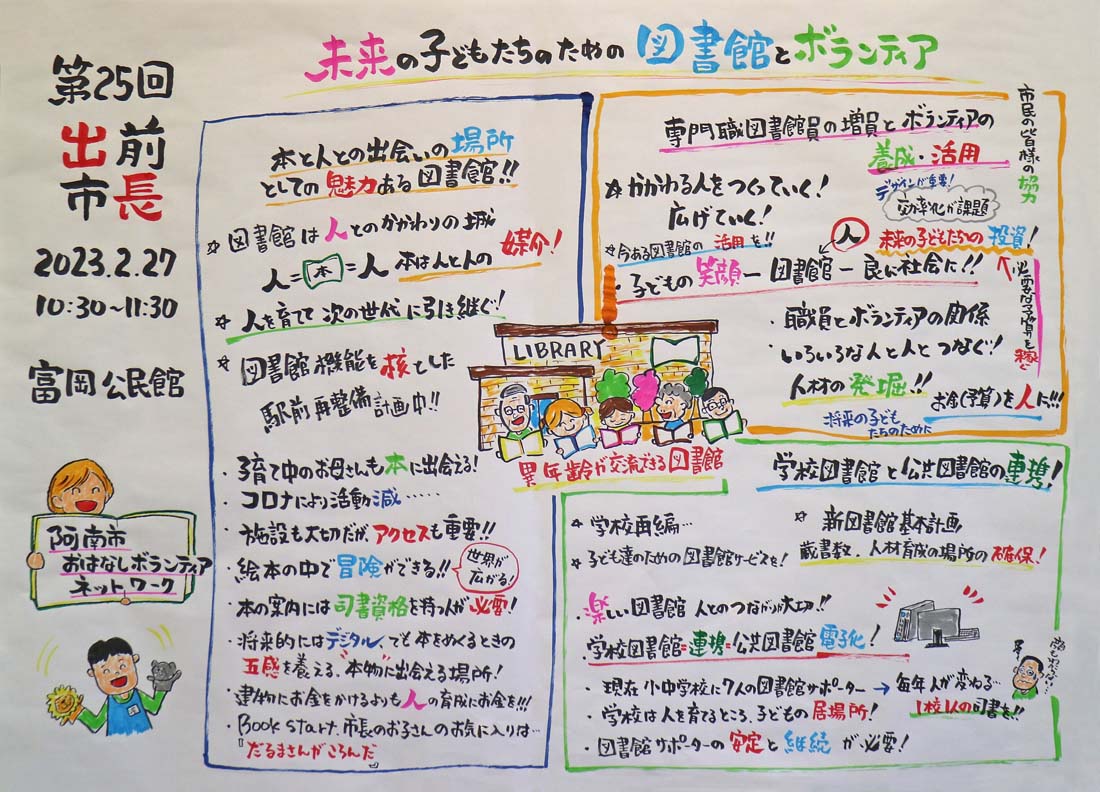 未来の子どもたちのための図書館とボランティア
第25回
出前
市長
2023.2.27
10:30~11:30
富岡公民館
阿南市
おはなしボランティア
ネットワーク
本と人との出会いの場所
としての魅力ある図書館!!
☆図書館は人とのかかわりの城
人=本=人 本は人と人の媒介!
☆人を育てて次の世代に引き継ぐ!
☆図書館機能を核とした
駅前再整備計画中!!
・子育て中のお母さんも本に出会える!
・コロナにより活動減……
・施設も大切だが、アクセスも重要!!
・絵本の中で冒険ができる!!
世界が
広がる!
・本の案内には司書資格を持つ人が必要!
・将来的にはデジタル、でも本をめくるときの
五感を養える、"本物"に出会える場所!
・建物にお金をかけるよりも人の育成にお金を!!!
・Book start、市長のお子さんのお気に入りは…
『だるまさんがころんだ』
LIBRARY
異年齢が交流できる図書館
専門職図書館員の増員とボランティアの
養成・活用
市民の皆様の協力
デザインが重要!
効率化が課題
☆かかわる人をつくっていく!
広げていく!
☆今ある図書館の活用を!!
人
未来の子どもたちの投資!
・子どもの笑顔ー図書館ー良い社会に!!
必要な予算を稼ぐ
・職員とボランティアの関係
・いろいろな人と人とつなぐ!
人材の発掘!!
お金(予算)を人に!!!
将来の子ども
たちのために
学校図書館と公共図書館の連携!
☆学校再編…
☆新図書館基本計画
蔵書数、人材育成の場所の確保!
☆子ども達のための図書館サービスを!
・楽しい図書館 人とのつながりが大切!!
学校図書館=連携=公共図書館 電子化!
・現在 小中学校に7人の図書館サポーター→毎年人が変わる…
1校1人の司書を!!
・学校は人を育てるところ、子どもの居場所!
・図書館サポーターの安定と継続が必要!